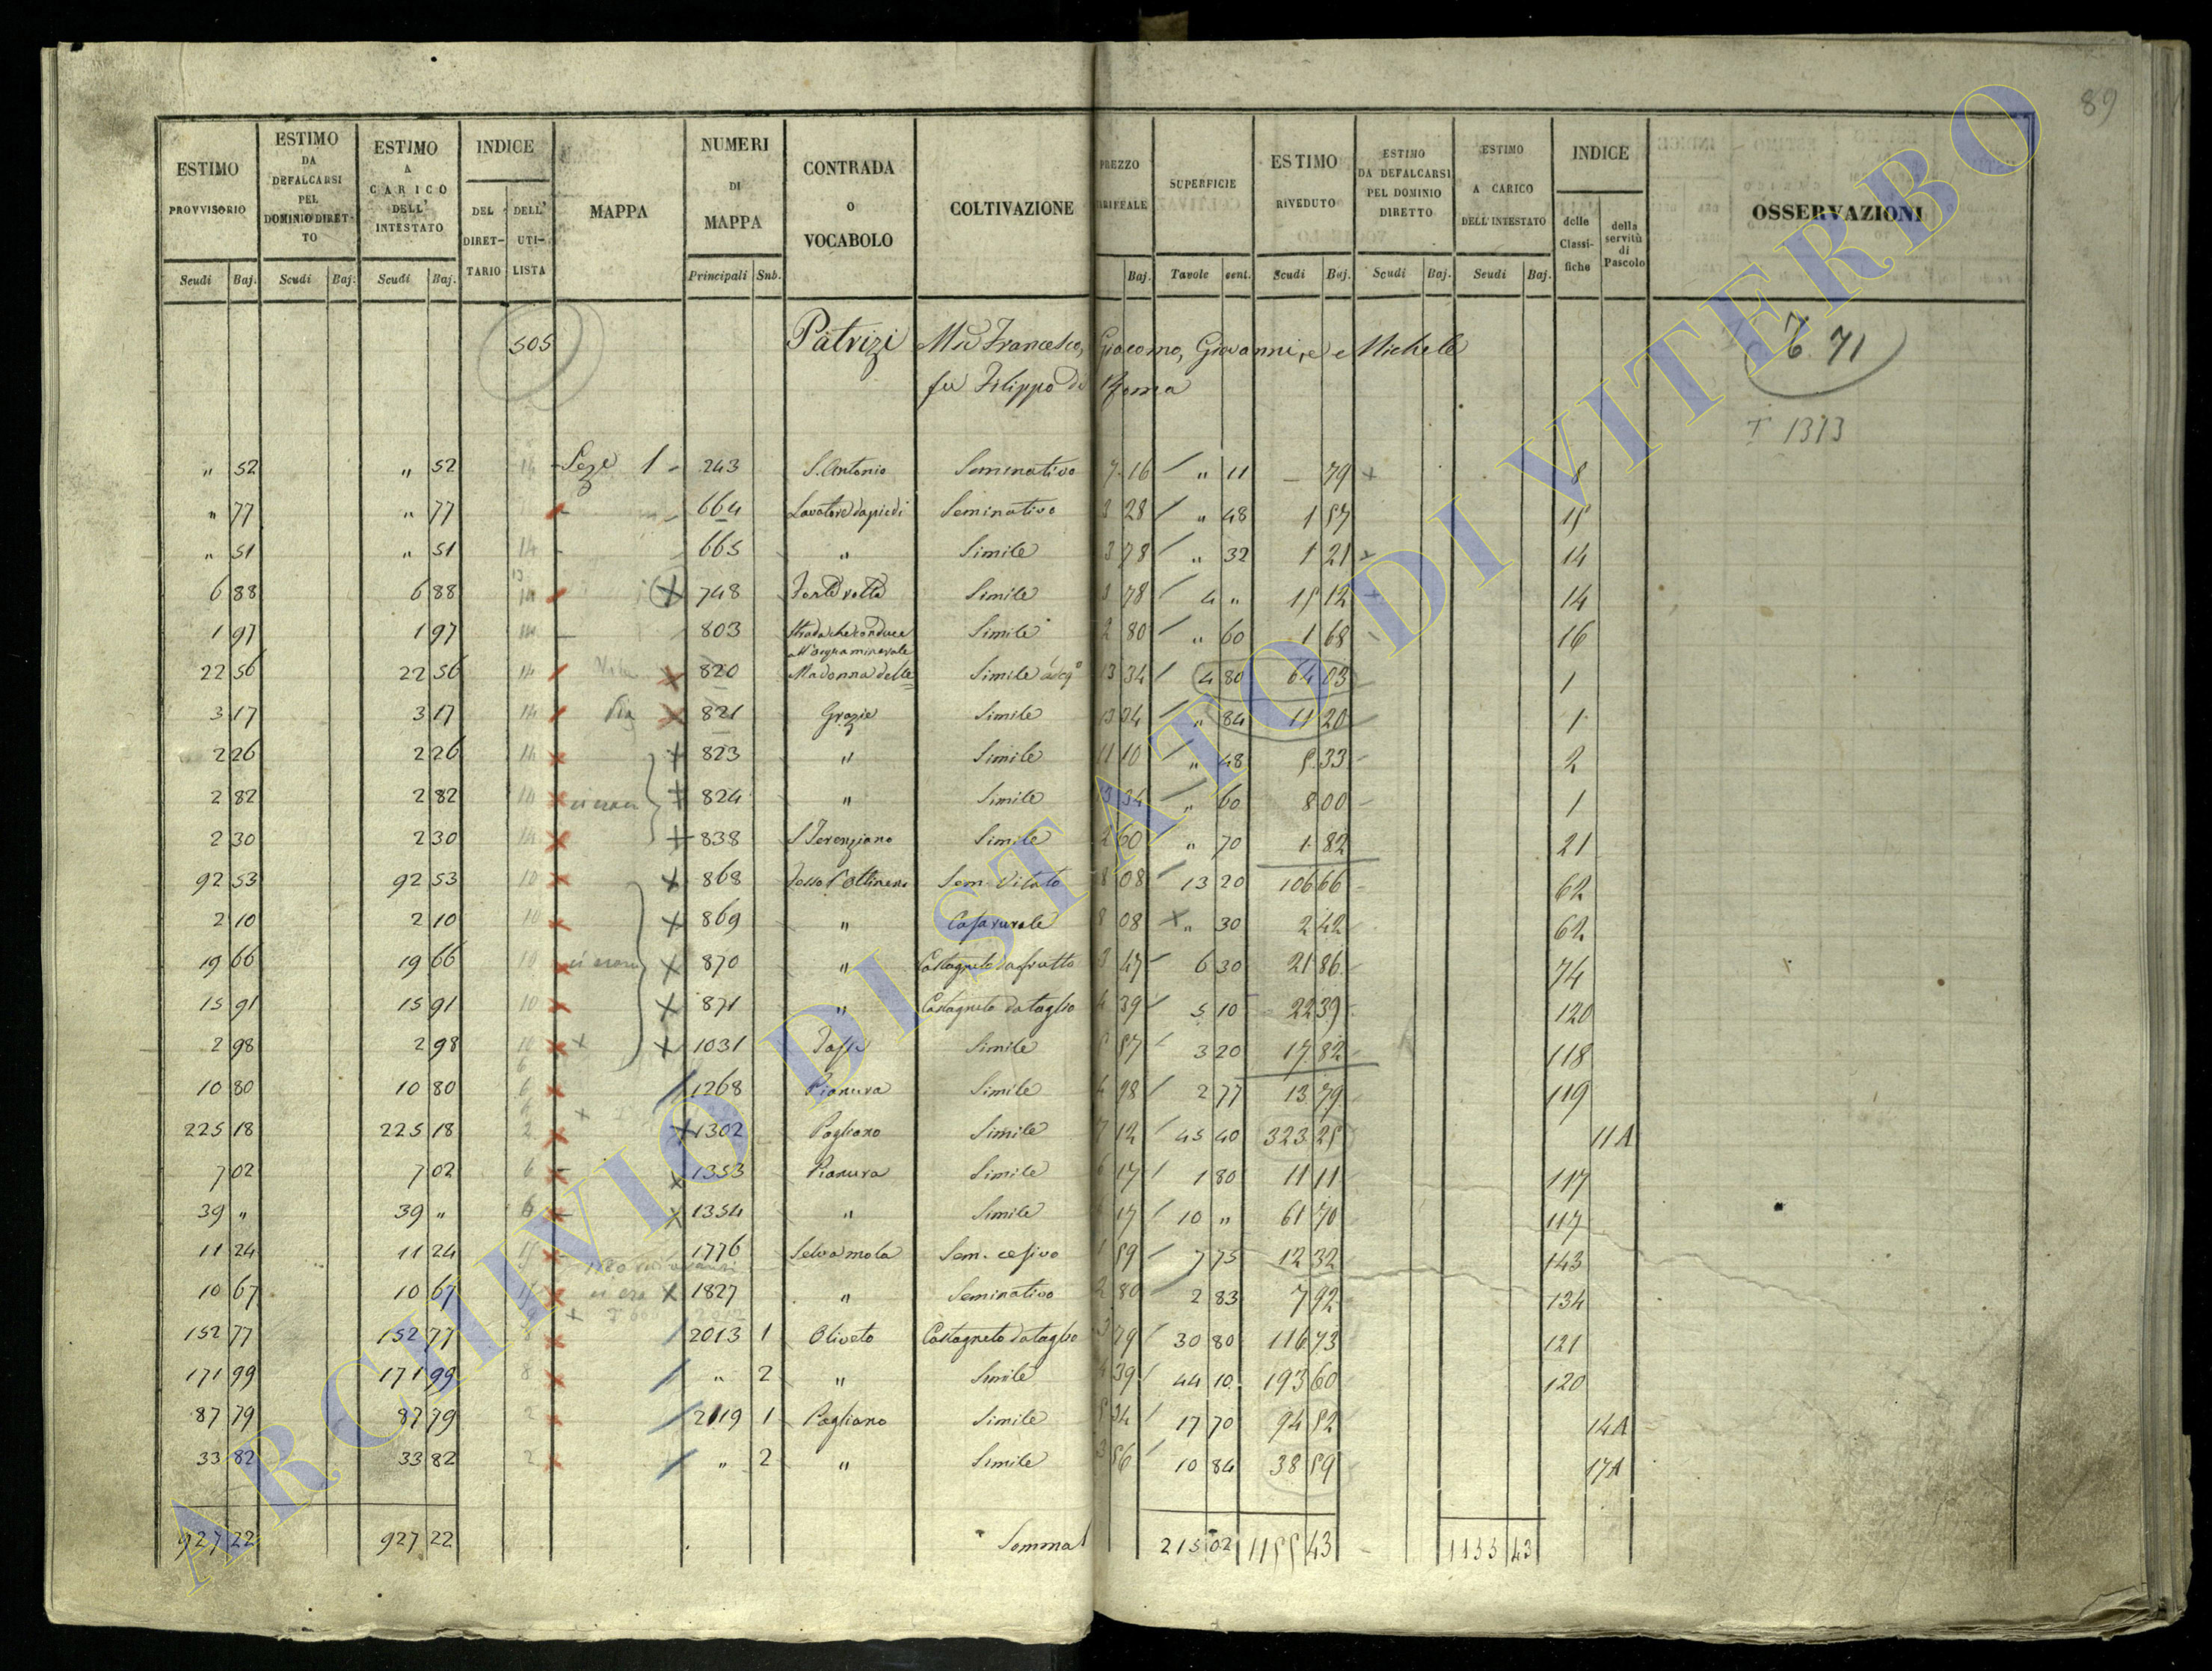 89
ESTIMO PROVVISORIO
ESTIMO DA DEFALCARSI PEL DOMINIO DIRET-TO
ESTIMO A CARICO DELL' INTESTATO
INDICE
DEL DIRET-TARIO
DELL' UTI-LISTA
MAPPA
NUMERI DI MAPPA
CONTRADA O VOCABOLO
COLTIVAZIONE
PREZZO
SUPERFICIE
ESTIMO RIVEDUTO
ESTIMO DA DEFALCARSI PEL DOMINIO DIRETTO
ESTIMO A CARICO DELL'INTESTATO
INDICE
delle Classi-fiche
della servitù di Pascolo
OSSERVAZIONI
Scudi Baj. Scudi Baj. Scudi Baj. Principali Sub. Baj. Tavole cent. Scudi Baj. Scudi Baj. Scudi Baj.
505 Patrizi Mse Francesco, Giacomo, Giovanni, e Michele 71
fu Filippo di Roma
T 1313
" 52 " 52 14 Seze 1 243 S. Antonio Seminativo 7 16 " 11 - 79 8
" 77 " 77 664 Lavatore da piedi Seminativo 3 28 " 48 1 57 15
" 51 " 51 14 665 " Simile 3 78 " 32 1 21 14
6 88 6 88 14 748 Simile 3 78 4 " 15 12 14
1 97 1 97 14 803 Strada che conduce all'acqua minerale Simile 2 80 " 60 1 68 16
22 56 22 56 14 820 Madonna delle Simile adcqo 13 34 4 80 64 03 1
3 17 3 17 14 821 Grazie Simile 13 34 " 84 11 20 1
2 26 2 26 14 823 " Simile 11 10 " 48 5 33 2
2 82 2 82 14 824 " Simile 13 34 " 60 8 00 1
2 30 2 30 14 838 S Terenziano Simile 2 60 " 70 1 82 21
92 53 92 53 10 868 Sem. Vitato 8 08 13 20 106 66 62
2 10 2 10 10 869 " Casa rurale 8 08 " 30 2 42 62
19 66 19 66 10 870 " Castagneto da frutto 3 47 6 30 21 86 74
15 91 15 91 10 871 " Castagneto da taglio 4 39 5 10 22 39 120
2 98 2 98 10 1031 Simile 5 57 3 20 17 82 118
10 80 10 80 6 1268 Pianura Simile 4 98 2 77 13 79 119
225 18 225 18 2 1302 Pogliano Simile 7 12 45 40 323 25 11A
7 02 7 02 6 1353 Pianura Simile 6 17 1 80 11 11 117
39 " 39 " 6 1354 " Simile 6 17 10 " 61 70 117
11 24 11 24 1776 Selva mola Sem. cesivo 1 59 7 75 12 32 143
10 67 10 67 1827 " Seminativo 2 80 2 83 7 92 134
152 77 152 77 8 2013 1 Oliveto Castagneto da taglio 3 79 30 80 116 73 121
171 99 171 99 8 " 2 " Simile 4 39 44 10 193 60 120
87 79 87 79 2 2119 1 Pogliano Simile 5 34 17 70 94 52 14A
33 82 33 82 2 " 2 " Simile 3 56 10 84 38 59 17A
927 22 927 22 Somma 215 02 1155 43 1155 43
ARCHIVIO DI STATO DI VITERBO